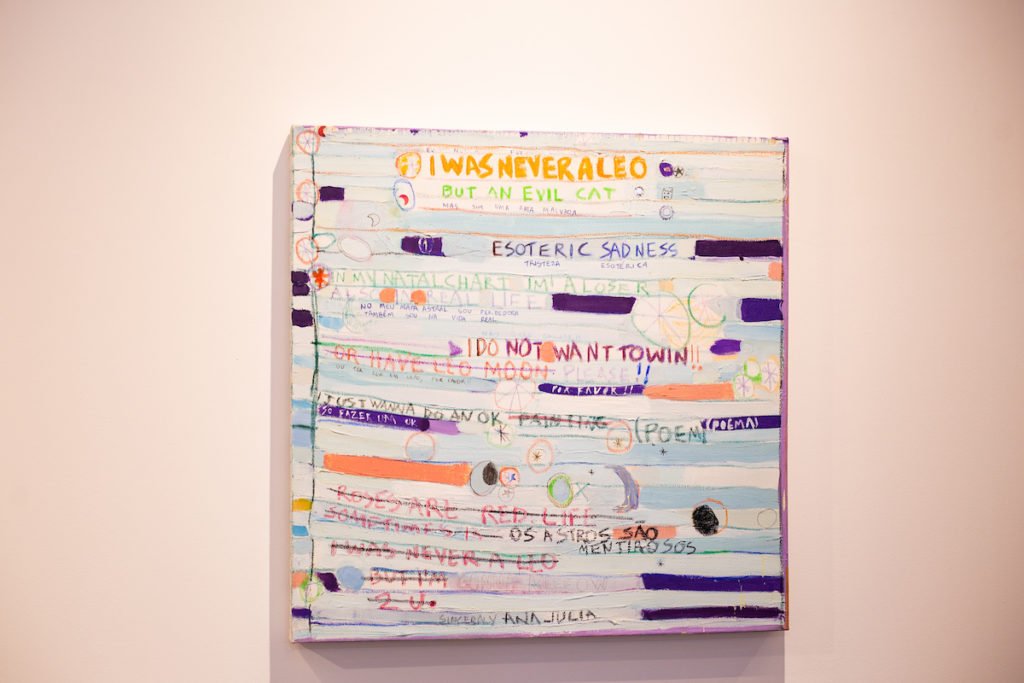 I WAS NEVER A LEO
BUT AN EVIL CAT
MAS SIM UMA GATA MALVADA
ESOTERIC SADNESS
TRISTEZA ESOTÉRICA
IN MY NATAL CHART IM' A LOSER
ALSO IN REAL LIFE
NO MEU MAPA ASTRAL SOU PERDEDORA
TAMBÉM SOU NA VIDA REAL
I DO NOT WANT TO WIN!!
OR HAVE LEO MOON PLEASE!!
POR FAVOR!!
I JUST WANNA DO AN OK, PAINTING (POEM)
SÓ FAZER UM OK (POEMA)
ROSES ARE RED LIFE
SOMETIMES IS OS ASTROS SÃO
MENTIROSOS
I WAS NEVER A LEO
BUT I'M
2 U.
SINCERALY ANA JULIA